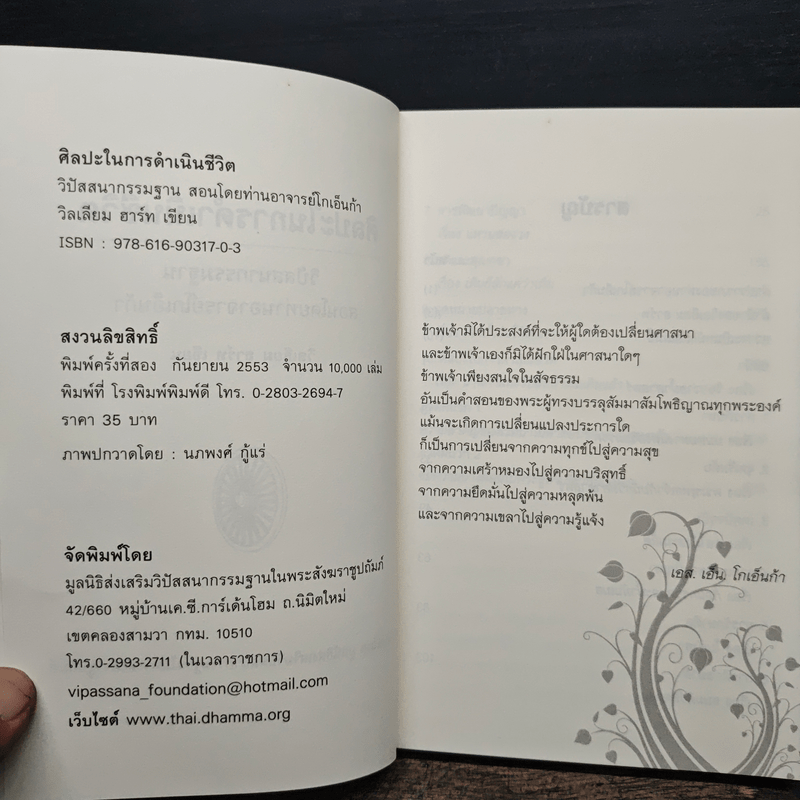 ศิลปะในการดำเนินชีวิต
วิปัสสนากรรมฐาน สอนโดยท่านอาจารย์โกเอ็นก้า
วิลเลียม ฮาร์ท เขียน
ISBN : 978-616-90317-0-3
สงวนลิขสิทธิ์
พิมพ์ครั้งที่สอง กันยายน 2553 จำนวน 10,000 เล่ม
พิมพ์ที่ โรงพิมพ์พิมพ์ดี โทร. 0-2803-2694-7
ราคา 35 บาท
ภาพปกวาดโดย : นภพงศ์ กู้แร่
จัดพิมพ์โดย
มูลนิธิส่งเสริมวิปัสสนากรรมฐานในพระสังฆราชูปถัมภ์
42/660 หมู่บ้านเค.ซี.การ์เด้นโฮม ถ.นิมิตใหม่
เขตคลองสามวา กทม. 10510
โทร.0-2993-2711 (ในเวลาราชการ)
vipassana_foundation@hotmail.com
เว็บไซต์ www.thai.dhamma.org
ข้าพเจ้ามิได้ประสงค์ที่จะให้ผู้ใดต้องเปลี่ยนศาสนา
และข้าพเจ้าเองก็มิได้ฝักใฝ่ในศาสนาใดๆ
ข้าพเจ้าเพียงสนใจในสัจธรรม
อันเป็นคำสอนของพระผู้ทรงบรรลุสัมมาสัมโพธิญาณทุกพระองค์
แม้นจะเกิดการเปลี่ยนแปลงประการใด
ก็เป็นการเปลี่ยนจากความทุกข์ไปสู่ความสุข
จากความเศร้าหมองไปสู่ความบริสุทธิ์
จากความยึดมั่นไปสู่ความหลุดพ้น
และจากความเขลาไปสู่ความรู้แจ้ง
เอส. เอ็น. โกเอ็นก้า